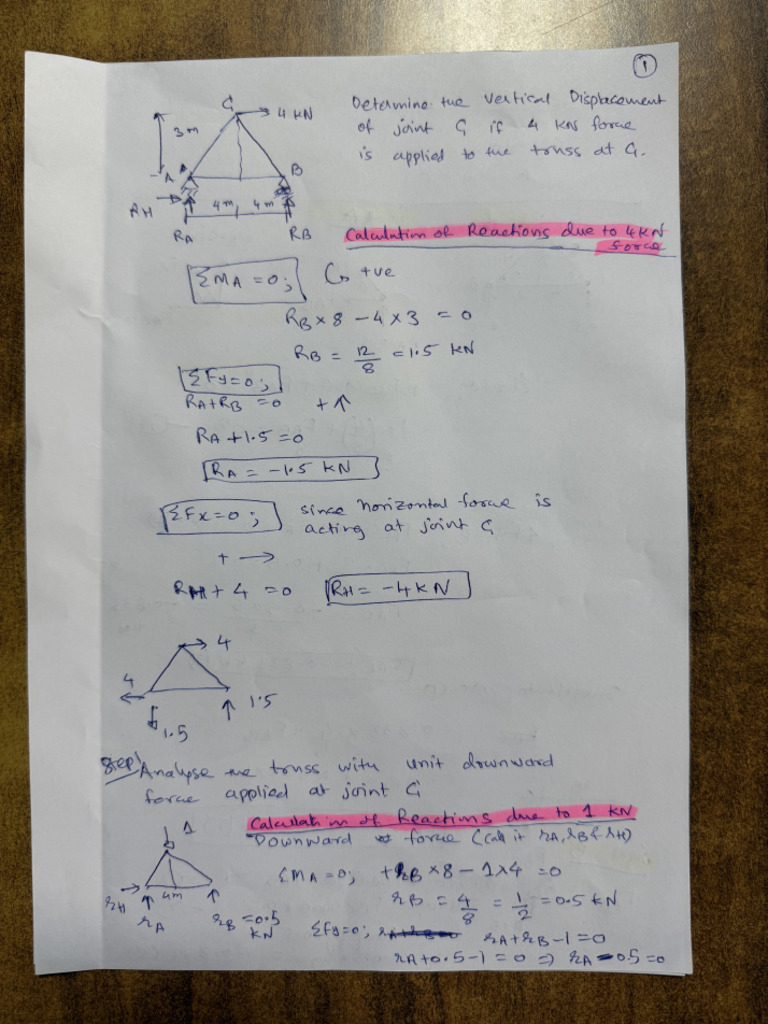 1
G
4 kN
3m
A
B
RH
4m
4m
RA
RB
Determine the vertical Displacement
of joint G if 4 kN force
is applied to the truss at G.
Calculation of Reactions due to 4kN
force
ΣMA = 0; +ve
RB × 8 – 4 × 3 = 0
RB = 12/8 = 1.5 kN
ΣFy=0;
RA+RB = 0 + ↑
RA + 1.5 = 0
RA = –1.5 kN
ΣFx=0; since horizontal force is
acting at joint G
+ →
RH + 4 = 0 RH = –4kN
4
4
1.5
1.5
Step 1 Analyse the truss with unit downward
force applied at joint G
Calculation of Reactions due to 1 kN
Downward force (call it rA, rB & rH)
1
4m
rH
rA
rB = 0.5
kN
ΣMA=0; +rB × 8 – 1×4 = 0
rB = 4/8 = 1/2 = 0.5 kN
ΣFy=0; rA+rB–1=0
rA+0.5–1 = 0 ⇒ rA–0.5 =0